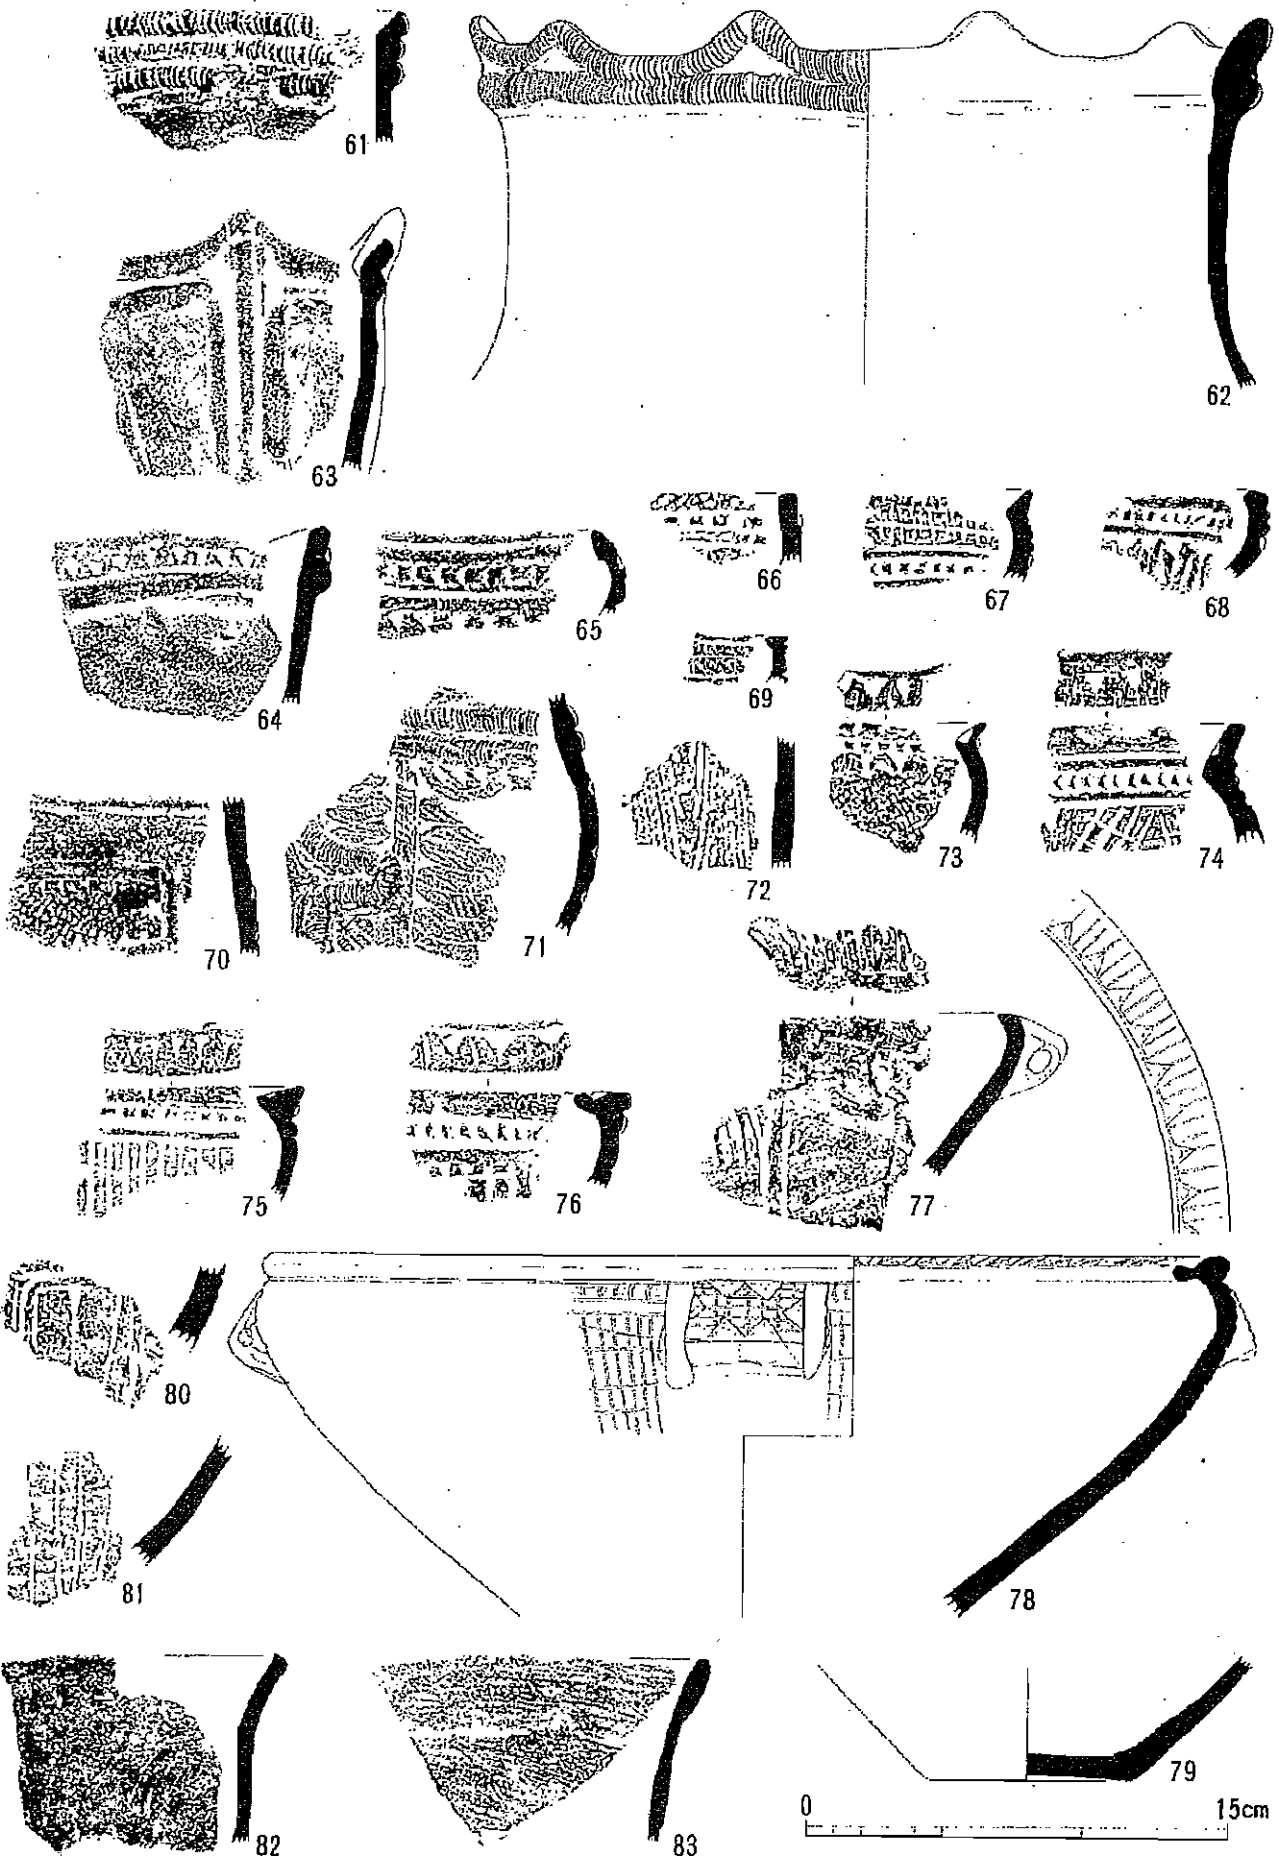 61
62
63
64
65
66
67
68
69
70
71
72
73
74
75
76
77
78
79
80
81
82
83
0 15cm